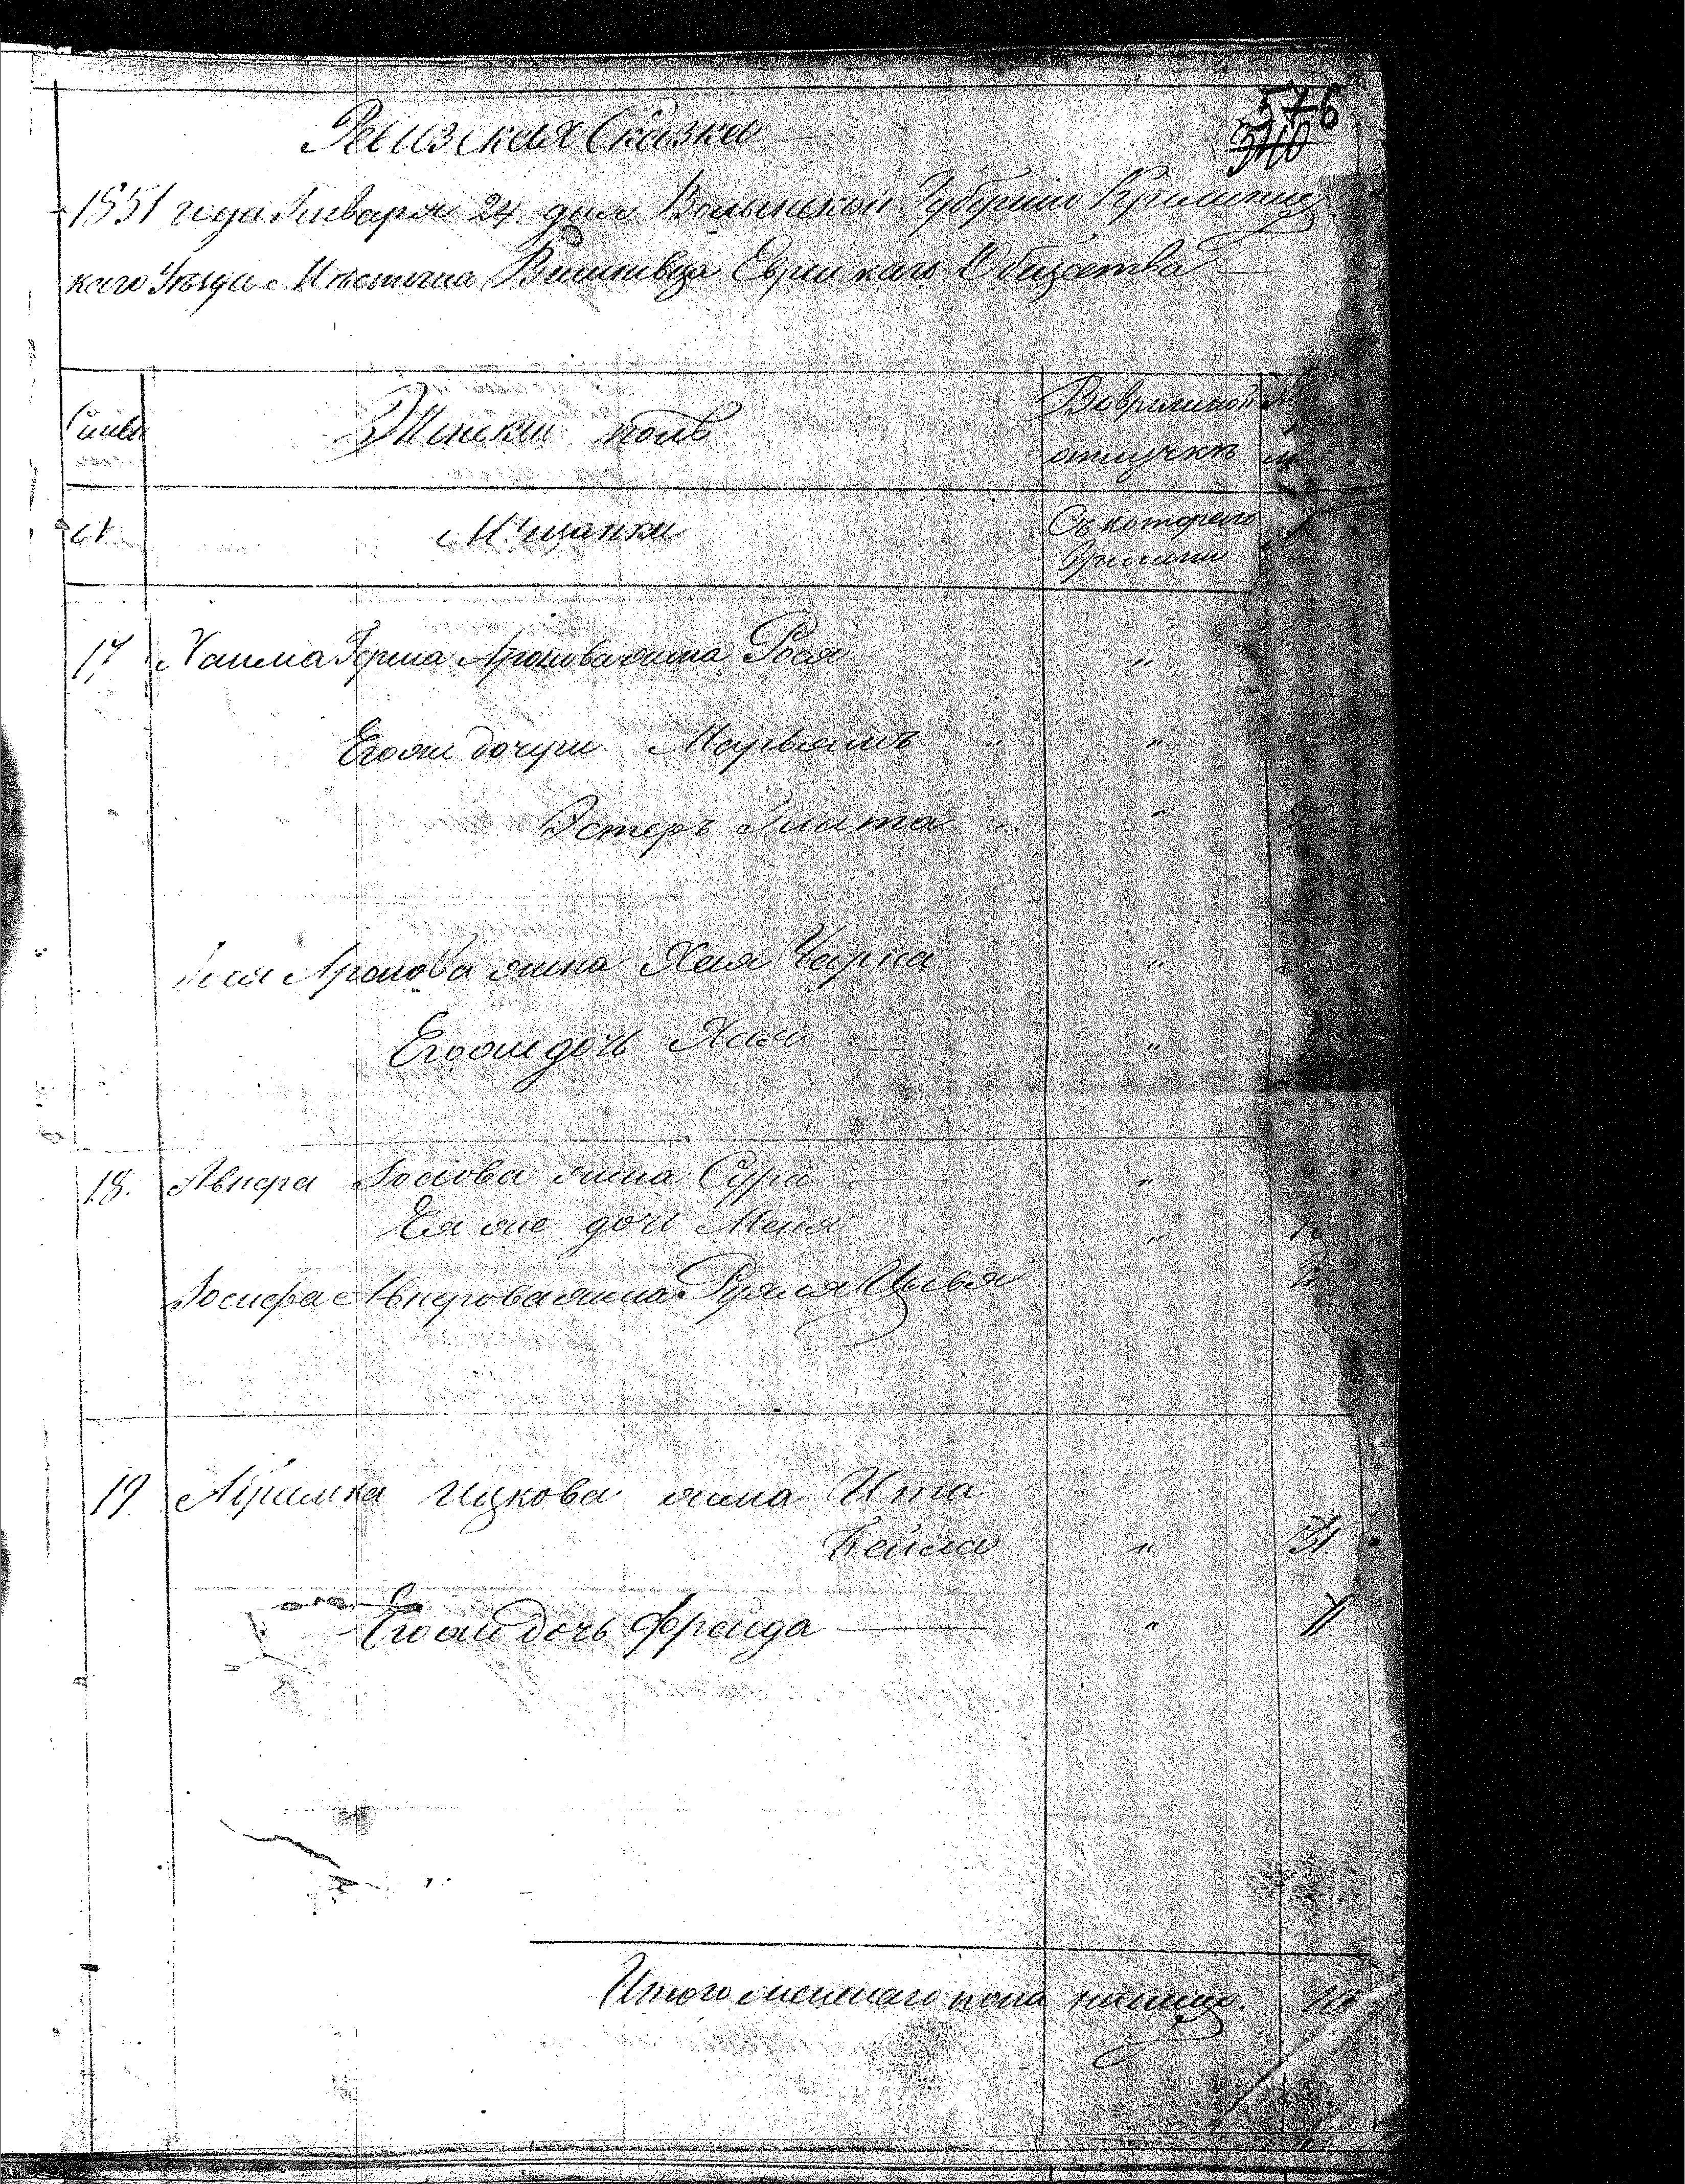 576
340
Ревизская Сказка
1851 года Января 24. дня Волынской Губернии Кременец
каго Уѣзда Мѣстечка Вишневца Еврейскаго Общества
Семьи
Женскій полъ
Во временной
отлучкѣ
№
Мѣщанки
Съ котораго
Времени
17 Хаима Герша Аронова жена Рося "
Его же дочери Марьямъ " "
Эстеръ Злата "
Аронова жена Хая Чарна "
Его же дочь Хая "
18. Авнера Іосіова жена Сура "
Ея же дочь Меня "
Іосифа Авнерова жена Рузя Цывья
19 Абрамка Ицкова жена Ита
Бейла " 31.
Его же дочь Фрейда " 11.
Итого женскаго пола на лицо.